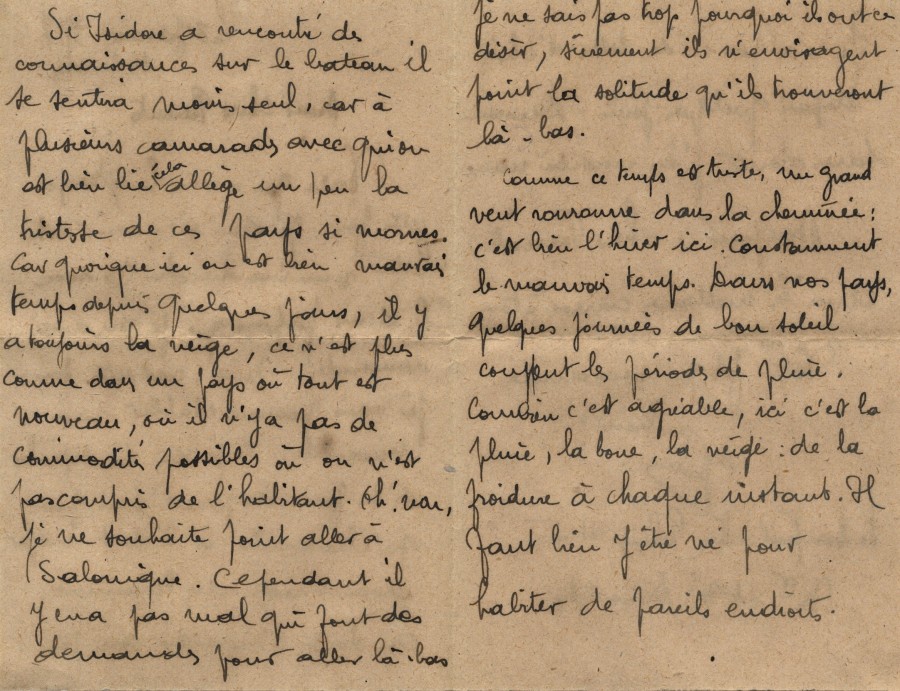 Si Isidore a rencontré des
connaissances sur le bateau il
se sentira moins seul, car à
plusieurs camarades avec qui on
est bien lié cela allège un peu la
tristesse de ces pays si mornes.
Car quoique ici on est bien mauvais
temps depuis quelques jours, il y
a toujours la neige, ce n'est plus
comme dans un pays où tout est
nouveau, où il n'y a pas de
commodités possibles où on n'est
pas compris de l'habitant. Eh! non,
je ne souhaite point aller à
Salonique. Cependant il
y en a pas mal qui font des
demandes pour aller là-bas
je ne sais pas trop pourquoi ils ont ce
désir, sûrement ils n'envisagent
point la solitude qu'ils trouveront
là-bas.
Comme ce temps est triste, un grand
vent ronronne dans la cheminée:
c'est bien l'hiver ici. Constamment
le mauvais temps. Dans nos pays,
quelques journées de bon soleil
coupent les périodes de pluie.
Combien c'est agréable, ici c'est la
pluie, la boue, la neige: de la
froidure à chaque instant. Il
faut bien y être né pour
habiter de pareils endroits.